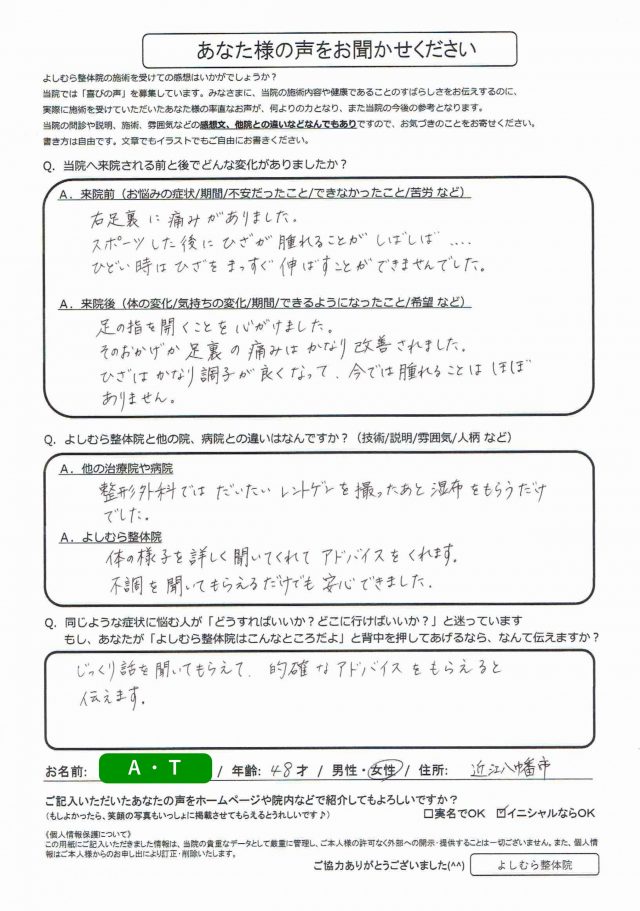 あなた様の声をお聞かせください
よしむら整体院の施術を受けての感想はいかがでしょうか?
当院では「喜びの声」を募集しています。みなさまに、当院の施術内容や健康であることのすばらしさをお伝えするのに、
実際に施術を受けていただいたあなた様の率直なお声が、何よりの力となり、また当院の今後の参考となります。
当院の問診や説明、施術、雰囲気などの感想文、他院との違いなどなんでもありですので、お気づきのことをお寄せください。
書き方は自由です。文章でもイラストでもご自由にお書きください。
Q. 当院へ来院される前と後でどんな変化がありましたか?
A. 来院前(お悩みの症状/期間/不安だったこと/できなかったこと/苦労 など)
右足裏に痛みがありました。
スポーツした後にひざが腫れることがしばしば....
ひどい時はひざをまっすぐ伸ばすことができませんでした。
A. 来院後(体の変化/気持ちの変化/期間/できるようになったこと/希望 など)
足の指を開くことを心がけました。
そのおかげか足裏の痛みはかなり改善されました。
ひざはかなり調子が良くなって、今では腫れることはほぼ
ありません。
Q. よしむら整体院と他の院、病院との違いはなんですか?(技術/説明/雰囲気/人柄 など)
A. 他の治療院や病院
整形外科ではだいたいレントゲンを撮ったあと湿布をもらうだけ
でした。
A. よしむら整体院
体の様子を詳しく聞いてくれてアドバイスをくれます。
不調を聞いてもらえるだけでも安心できました.
Q. 同じような症状に悩む人が「どうすればいいか?どこに行けばいいか?」と迷っています
もし、あなたが「よしむら整体院はこんなところだよ」と背中を押してあげるなら、なんて伝えますか?
じっくり話を聞いてもらえて、的確なアドバイスをもらえると
伝えます。
お名前: A・T / 年齢: 48才 / 男性・女性 / 住所: 近江八幡市
ご記入いただいたあなたの声をホームページや院内などで紹介してもよろしいですか?
(もしよかったら、笑顔の写真もいっしょに掲載させてもらえるとうれしいです♪) □実名でOK ☑イニシャルならOK
《個人情報保護について》
この用紙にご記入いただきました情報は、当院の貴重なデータとして厳重に管理し、ご本人様の許可なく外部への開示・提供することは一切ございません。また、個人情
報はご本人様からのお申し出により訂正・削除いたします。
ご協力ありがとうございました(^^) よしむら整体院